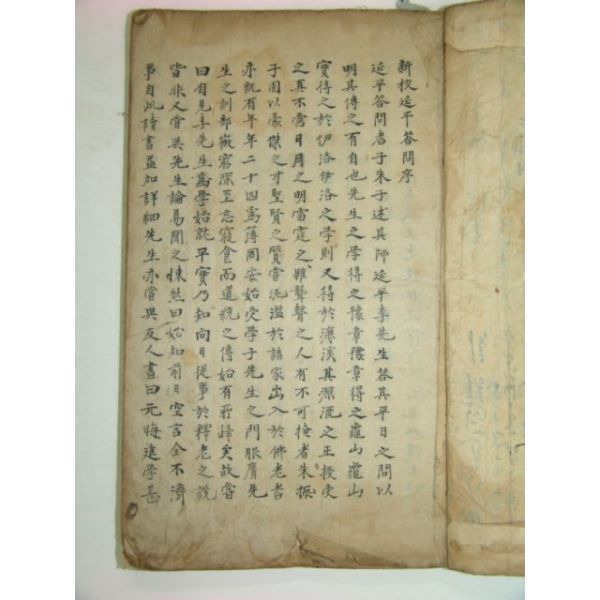 新校延平答問序
延平答問者子朱子述其師延平李先生答其平日之問以
明其傳之有自也先生之學得之豫章豫章得之龜山龜山
實得之於伊洛伊洛之學則又得於濂溪其源流之正授受
之真不啻日月之明雷霆之聲之人有不可掩者朱
子固以豪傑之才聖賢之資嘗泛濫於諸家出入於佛老者
亦旣有年年二十四爲薄同安始受學于先生之門服膺先
生之訓部蔵窮深至忘寢食而道統之傳始有所歸矣故嘗
曰自見李先生爲學始就平實乃知向日從事於釋老之說
皆非又嘗與先生論易聞之悚然曰始知前日空言全不濟
事自此讀書益加詳細先生亦嘗與友人書曰元晦進學甚